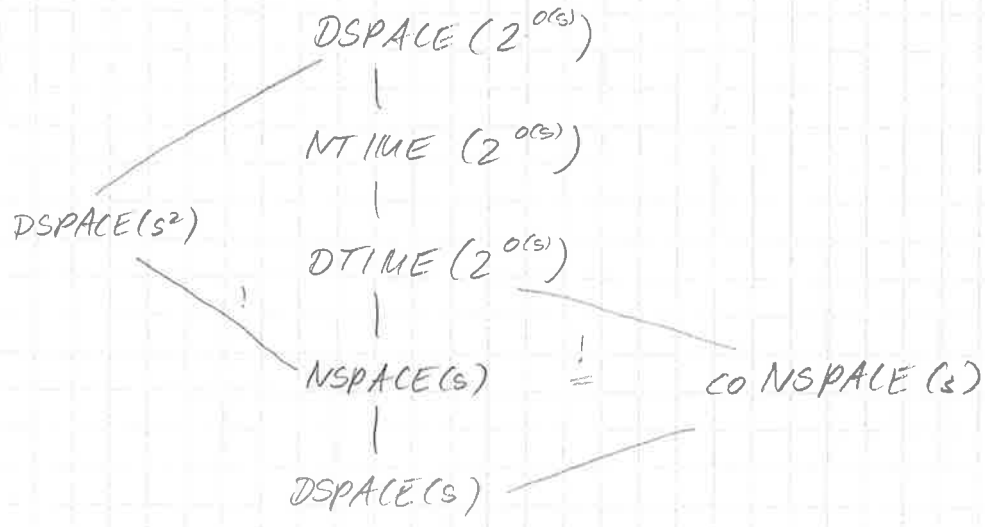 DSPACE (2^O(s))
NTIME (2^O(s))
DSPACE(s²)
DTIME (2^O(s))
!
NSPACE(s) =! co NSPACE (s)
DSPACE(s)